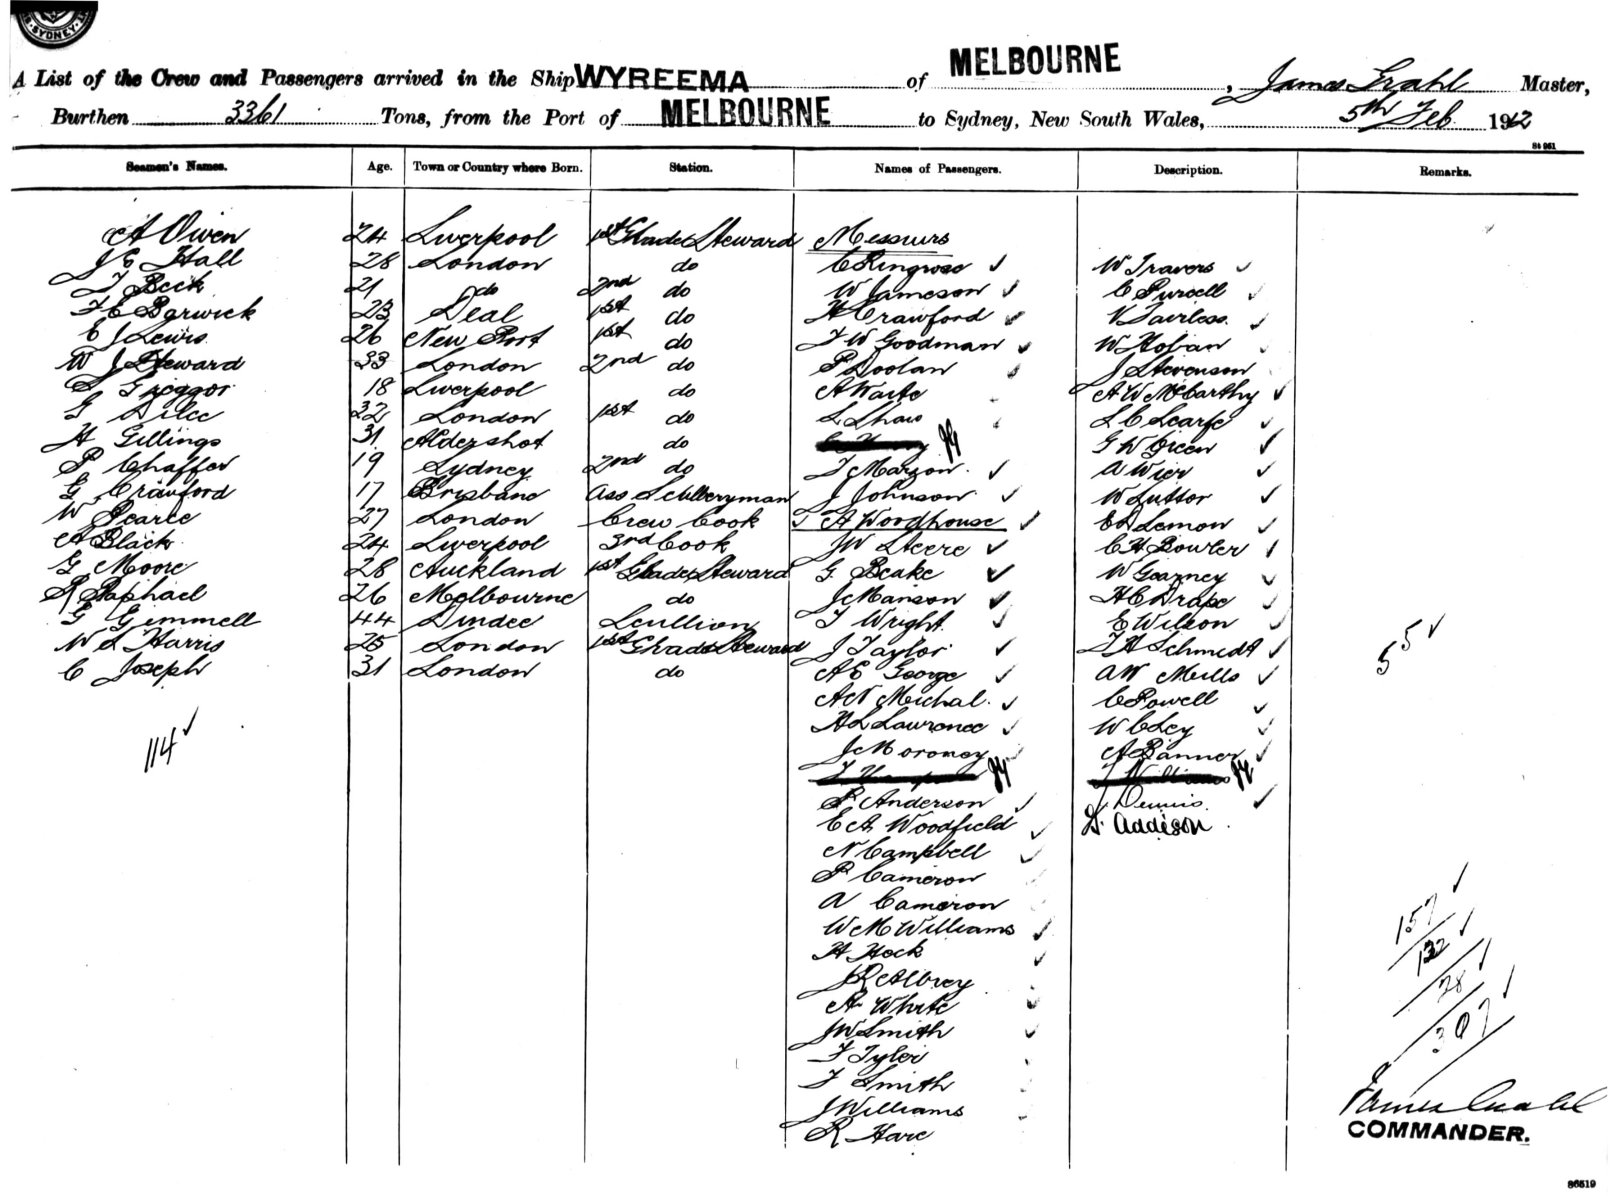 SYDNEY
A List of the Crew and Passengers arrived in the Ship WYREEMA of MELBOURNE, James Grahl Master,
Burthen 3361 Tons, from the Port of MELBOURNE to Sydney, New South Wales, 5th Feb 1912
Seamen's Names. Age. Town or Country where Born. Station. Names of Passengers. Description. Remarks.
A Owen 24 Liverpool 1st Glade Steward Messurs
J E Hall 28 London do C Ringrose W Travers
T Beck 21 do 2nd do W Jameson C Purcell
F E Barwick 23 Deal 1st do H Crawford V Fairless
E J Lewis 26 New Port 1st do F W Goodman W Hoban
W J Steward 33 London 2nd do P Doolan J Stevenson
S Greggor 18 Liverpool do A Waite A W McCarthy
G 32 London 1st do L Shaw L C Scarfe
H Gillings 31 Aldershot do G W Green
P Chaffer 19 Sydney 2nd do T Marzon A Wier
G Crawford 17 Brisbane Ass Sculleryman J Johnson W Luttor
W Pearce 27 London Crew Cook T A Woodhouse E D Lemon
A Black 24 Liverpool 3rd Cook J W Steere C H Bowler
G Moore 28 Auckland 1st Glade Steward G Beake W Gearney
R Raphael 26 Melbourne do J Manson H C Drape
G Gemmell 44 Dundee Scullion T Wright E Wilson
W S Harris 25 London 1st Glade Steward J Taylor F H Schmedt
C Joseph 31 London do A E George A W Mills
A N Michal C Powell
H L Lawrence W C Ley
J Moromey A Banner
114
55
P Anderson J Dennis
E A Woodfield D. Addison
N Campbell
P Cameron
A Cameron
W M Williams
H Hock
J R Albrey
A White
J W Smith
F Tyler
F Smith
J Williams
R Hare
157
132
28
307
James Grahl
COMMANDER.
86519